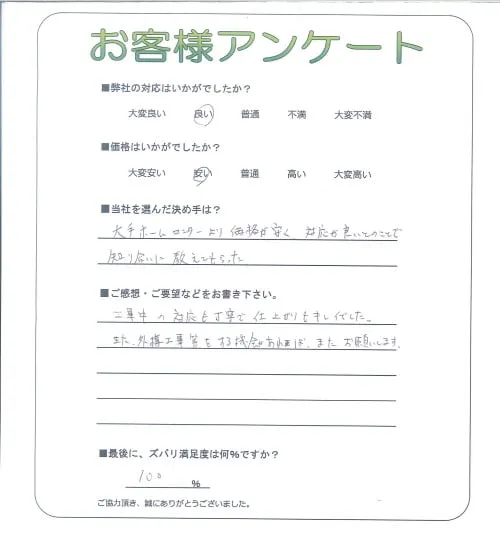 お客様アンケート
■弊社の対応はいかがでしたか?
大変良い 良い 普通 不満 大変不満
■価格はいかがでしたか?
大変安い 安い 普通 高い 大変高い
■当社を選んだ決め手は?
大手ホームセンターより価格が安く 対応が良いとのことで
知り合いに教えてもらった
■ご感想・ご要望などをお書き下さい。
工事中の対応も丁寧で仕上がりもキレイでした。
また、外構工事等をする機会があれば、またお願いします。
■最後に、ズバリ満足度は何%ですか?
100 %
ご協力頂き、誠にありがとうございました。